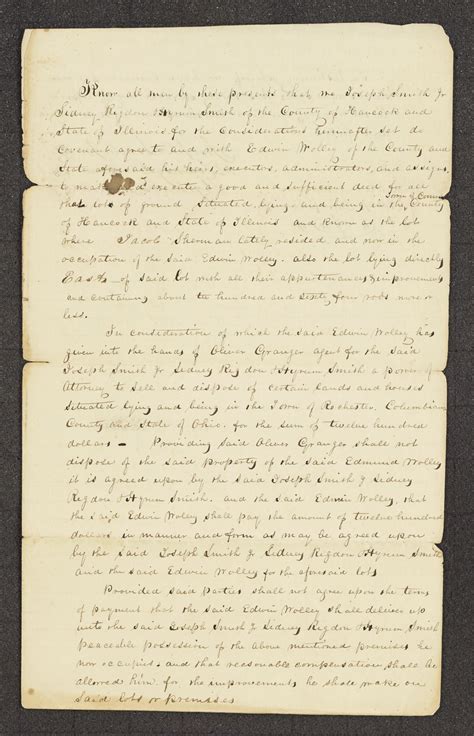 Know all men by these presents that we Joseph Smith Jr
Sidney Rigdon & Hyrum Smith of the County of Hancock and
State of Illinois for the Considerations hereinafter set do
Covenant agree to and with Edwin Wolley of the County and
State aforesaid his heirs, executors, administrators, and assigns
to make and execute a good and sufficient deed for all
Town of Commerce
that lots of ground Situated lying and being in the County
of Hancock and State of Illinois and known as the lot
where Jacob Sherman lately resided and now in the
occupation of the Said Edwin Wolley. also the lot lying directly
East of said lot with all their appurtenances & improvements
and containing about two hundred and sixty four rods more or
less.
In consideration of which the said Edwin Wolley has
given into the hands of Oliver Granger agent for the Said
Joseph Smith Jr Sidney Rigdon & Hyrum Smith a power of
Attorney to Sell and dispose of Certain lands and houses
Situated lying and being in the Town of Rochester. Columbiana
County and State of Ohio. for the sum of twelve hundred
dollars — Providing Said Oliver Granger shall not
dispose of the Said property of the Said Edmund Wolley
it is agreed upon by the Said Joseph Smith Jr Sidney
Rigdon & Hyrum Smith. and the Said Edwin Wolley, that
the Said Edwin Wolley Shall pay the amount of twelve hundred
dollars in manner and form as may be agreed upon
by the Said Joseph Smith Jr Sidney Rigdon & Hyrum Smith
and the Said Edwin Wolley for the aforesaid lots
Provided said parties shall not agree upon the terms
of payment that the Said Edwin Wolley shall deliver up
unto the said Joseph Smith Jr Sidney Rigdon & Hyrum Smith
peaceble possession of the above mentioned premises he
now occupies. and that reasonable compensation shall be
allowed him for the improvements he shall make on
Said lots or premises